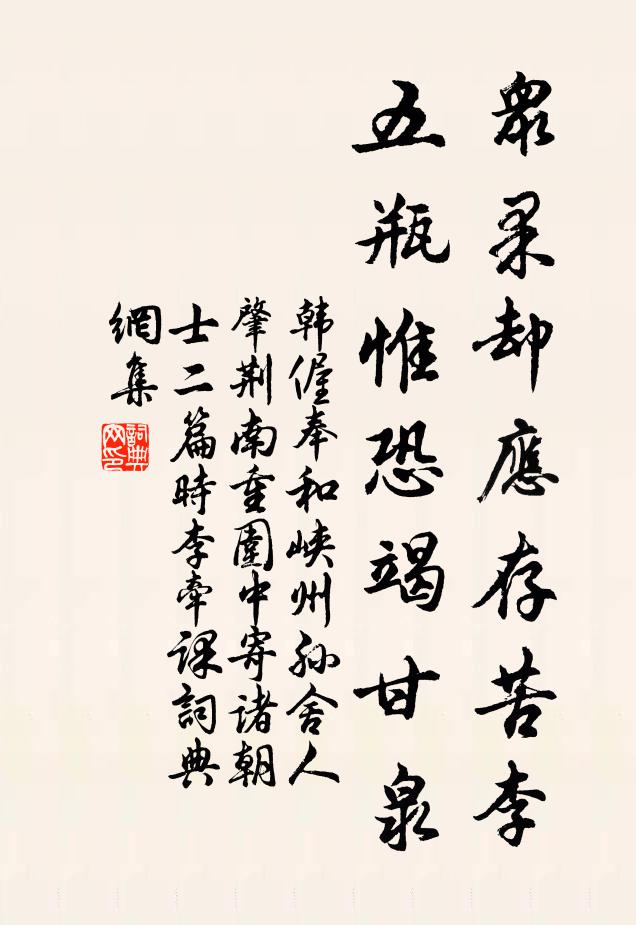 眾果却應存苦李
五瓶惟恐竭甘泉
韩偓奉和峡州孙舍人
肇荆南重圍中寄诸朝
士二篇時李牵课詞典
網集
詞典
网印